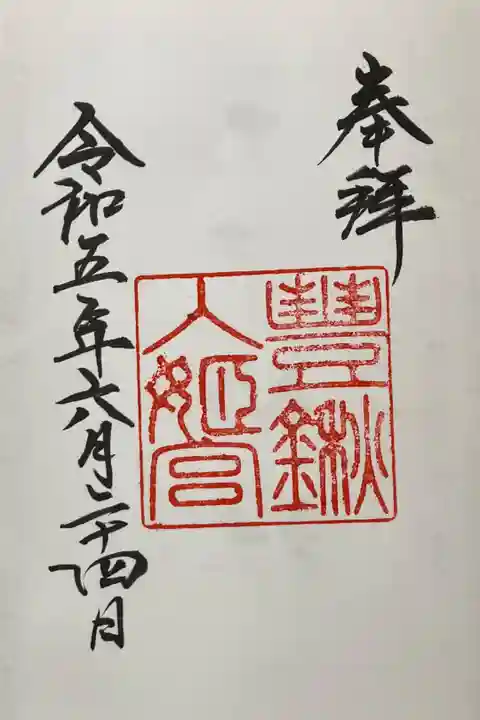 奉拜
豊鍬
入姫宮
令和五年六月二十四日